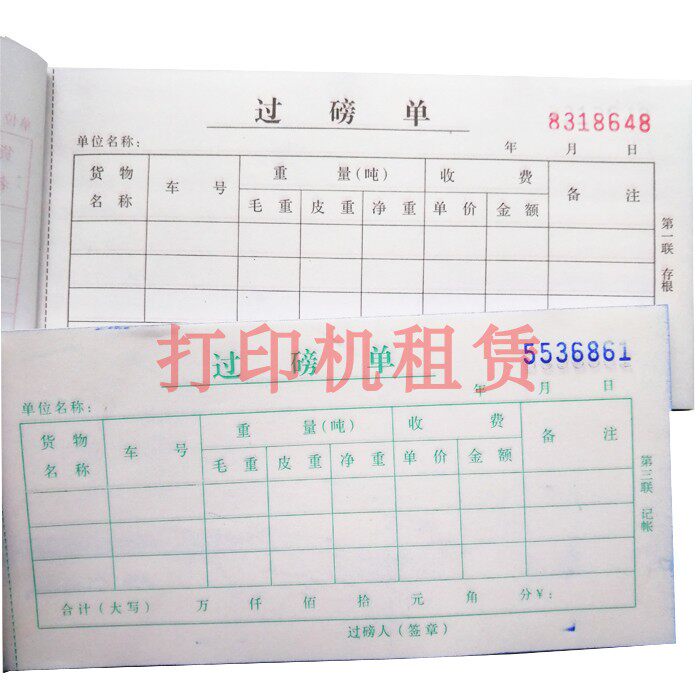 过 磅 单
8318648
单位名称: 年 月 日
货物名称 车号 重量(吨) 收费 备注
毛重 皮重 净重 单价 金额
第一联 存根
打印机租赁
过 磅 单
5536861
单位名称: 年 月 日
货物名称 车号 重量(吨) 收费 备注
毛重 皮重 净重 单价 金额
第三联 记帐
合计(大写) 万 仟 佰 拾 元 角 分¥:
过磅人(签章)